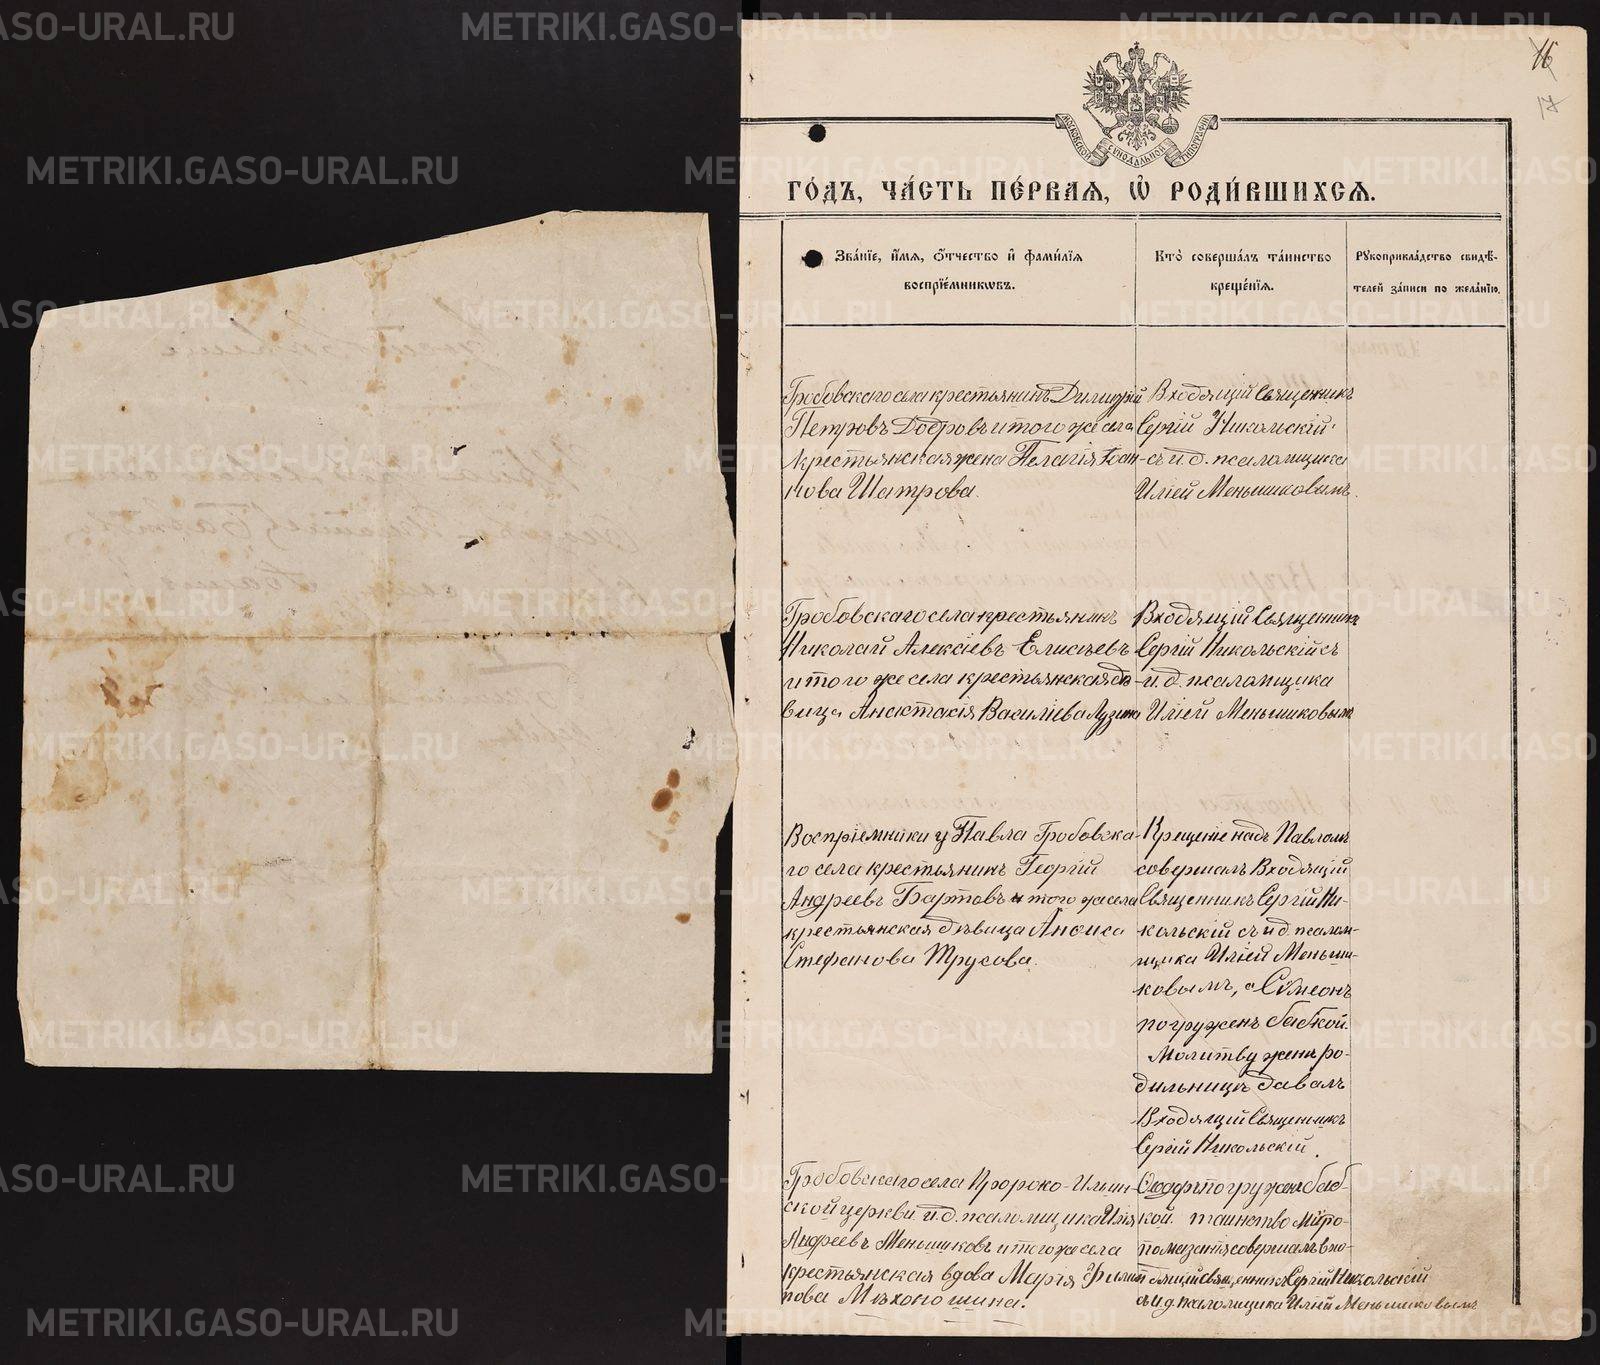 16
17
МОСКОВСКОЙ СѴНОДАЛЬНОЙ ТИПОГРАФІИ
ГО́ДЪ, ЧА́СТЬ ПЕ́РВАѦ, Ѽ РОДИ́ВШИХСѦ.
Зва́нїе, и́мѧ, ѻ҆́тчество и҆ фами́лїѧ
воспрїе́мникѡвъ.
Кто̀ соверша́лъ та́инство
креще́нїѧ.
Рꙋкоприкла́дство свидѣ́-
телей за́писи по жела́нїю.
Гробовскаго села крестьянинъ Димитрій
Петровъ и того же села
крестьянская жена Пелагія Іоан-
нова Шатрова.
Входящій Священникъ
Сергій Никольскій
съ и. д. псаломщика
Иліей Меньшиковымъ.
Гробовскаго села крестьянинъ
Николай Алексіевъ Елисѣевъ
и того же села крестьянская дѣ-
вица Анастасія Василіева Лузина
Входящій Священникъ
Сергій Никольскій съ
и. д. псаломщика
Иліей Меньшиковымъ
Воспріемники у Павла Гробовска-
го села крестьянинъ Георгій
Андреевъ Бартовъ и того же села
крестьянская дѣвица Анфиса
Стефанова Трусова.
Крещеніе надъ Павломъ
совершалъ Входящій
Священникъ Сергій Ни-
кольскій съ и. д. псалом-
щика Иліей Меньши-
ковымъ, а Сѵмеонъ
погруженъ бабкой.
Молитву женѣ ро-
дильницѣ давалъ
Входящій Священникъ
Сергій Никольскій.
Гробовскаго села Пророко-Ильин-
ской церкви и. д. псаломщика Илія
Андреевъ Меньшиковъ и того же села
крестьянская вдова Марія Филип-
пова Мѣхоношина.
погруженъ баб-
кой. таинство Мѵро-
помазанія совершалъ Вхо-
дящій Священникъ Сергій Никольскій
съ и. д. псаломщика Иліей Меньшиковымъ
METRIKI.GASO-URAL.RU